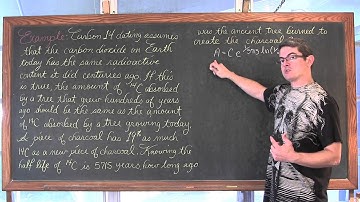 Example: Carbon 14 dating assumes
that the carbon dioxide on Earth
today has the same radioactive
content it did centuries ago. If this
is true, the amount of ¹⁴C absorbed
by a tree that grew hundreds of years
ago should be the same as the amount
of ¹⁴C absorbed by a tree growing today.
A piece of charcoal has 19% as much
¹⁴C as a new piece of charcoal. Knowing the
half life of ¹⁴C is 5715 years how long ago
was the ancient tree burned to
create the charcoal?
A = C e